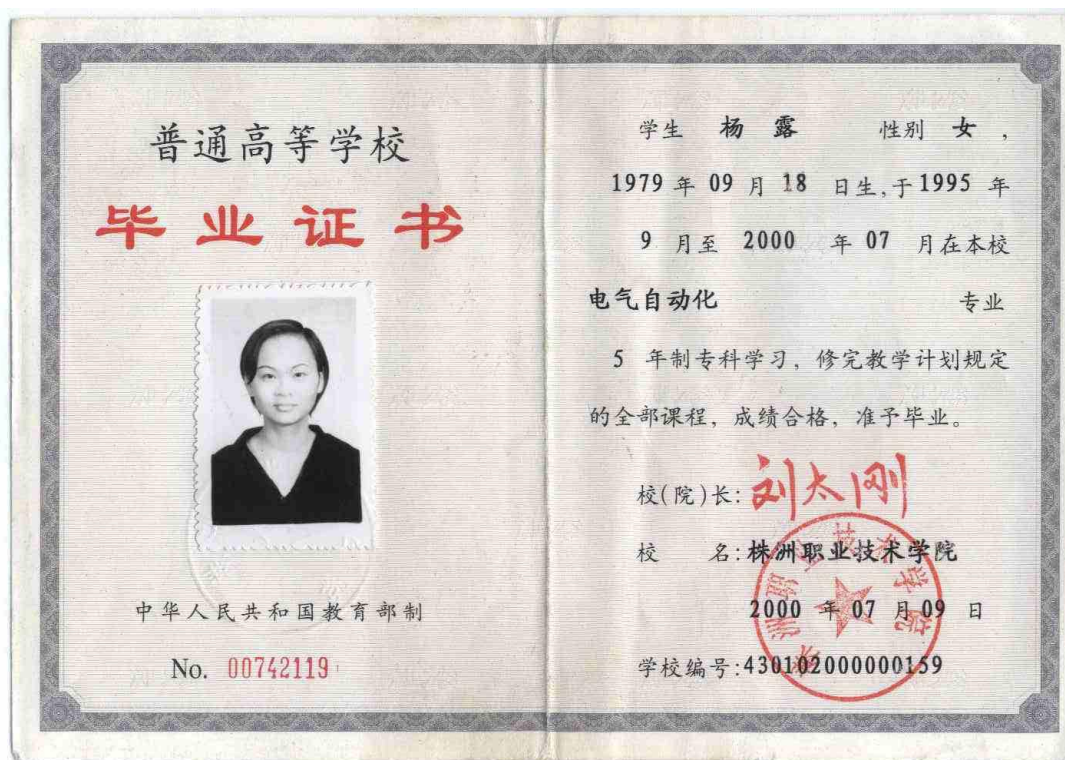 普通高等学校
毕业证书
中华人民共和国教育部制
No. 00742119
学生 杨露 性别 女，
1979 年 09 月 18 日生,于 1995 年
9 月至 2000 年 07 月在本校
电气自动化 专业
5 年制专科学习，修完教学计划规定
的全部课程，成绩合格，准予毕业。
校(院)长: 刘太刚
校 名: 株洲职业技术学院
2000 年 07 月 09 日
学校编号: 430102000000159
株洲职业技术学院